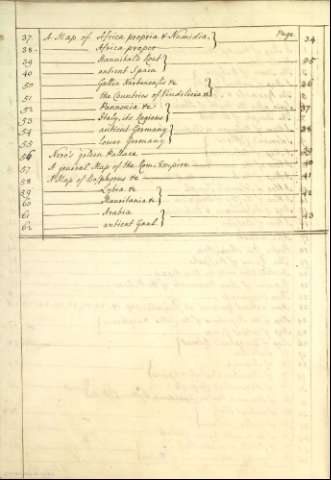 37 A Map of Africa propria & Numidia, } Page 34
38 Africa proper
39 Hannibals Rout } 35
40 antient Spain
50 Gallia Narbonensis &c } 36
51 the Countries of Vindelicia &c
52 Pannonia &c } 37
53 Italy, its Regions
54 antient Germany } 38
55 lower Germany
56 Nero's golden Pallace 39
57 A general Map of the Rom. Empire 40
58 A Map of Bosphorus &c 41
59 Lybia &c } 42
60 Mauritania &c
61 Arabia } 43
62 antient Gaul